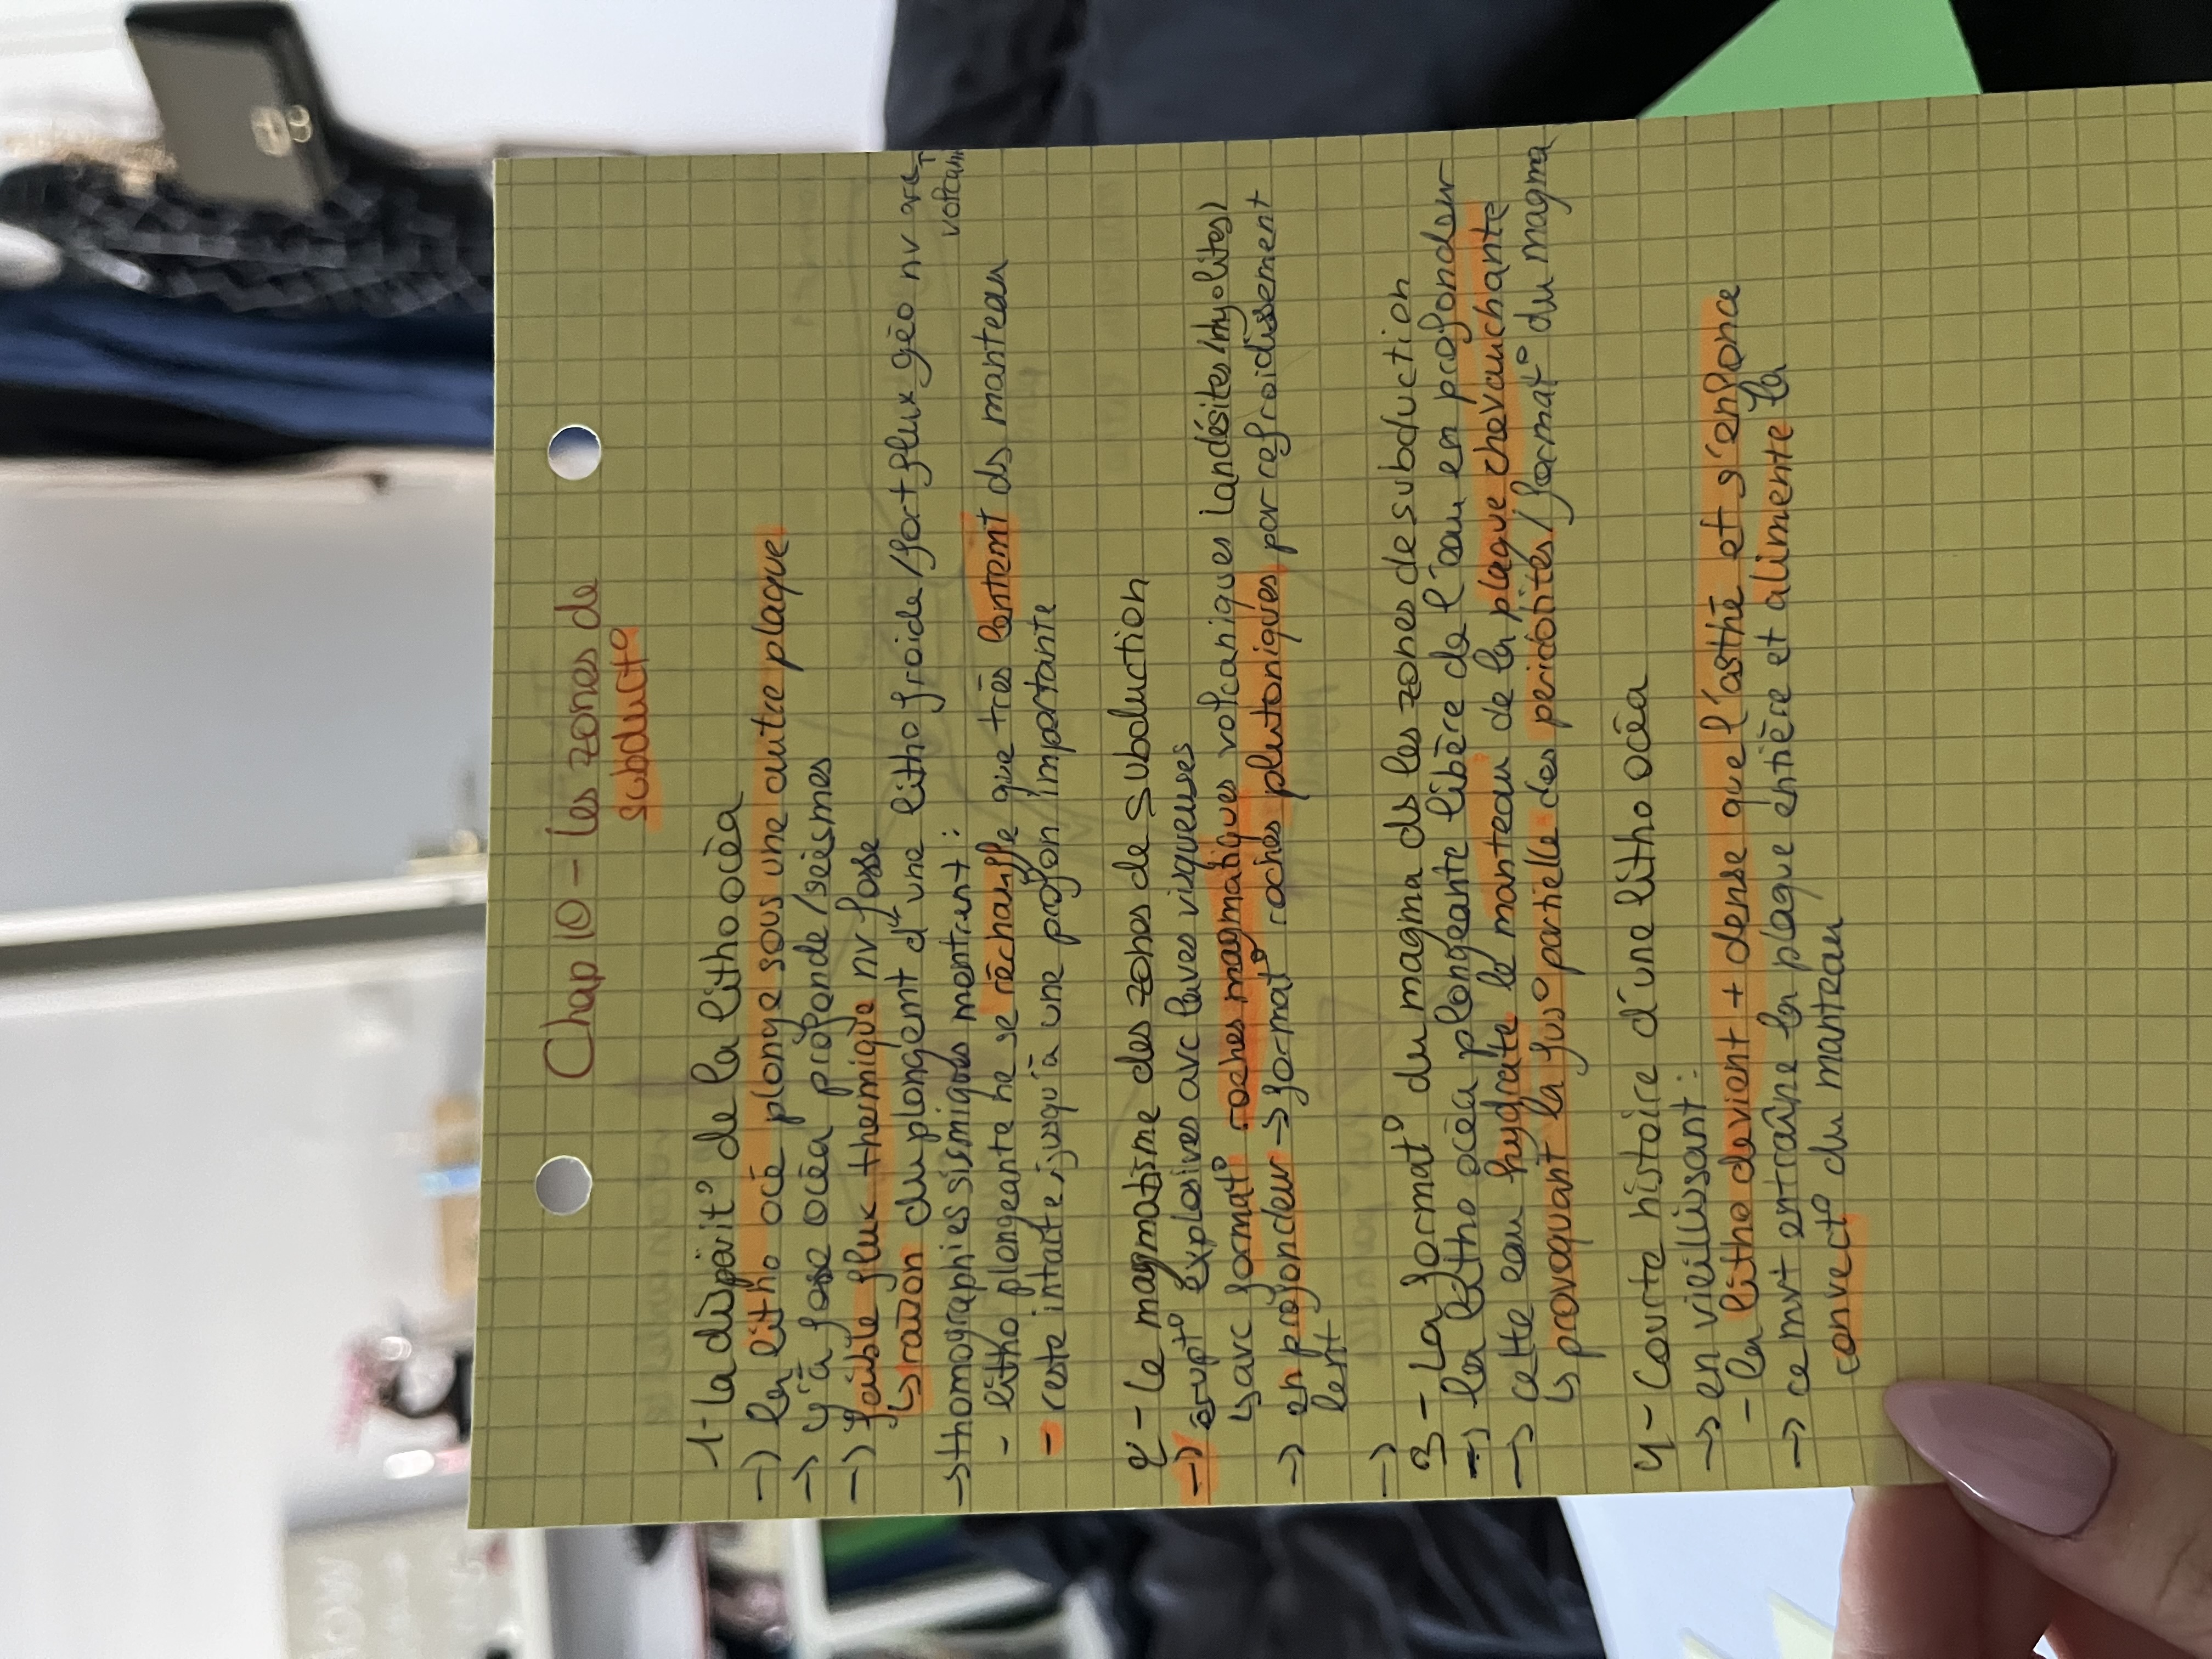 Chap 10 - les zones de
subduct°
1- la disparit° de la litho océa
→ la litho océ plonge sous une autre plaque
→ y'a fosse océa profonde / séismes
→ faible flux thermique nv fosse
↳ raison du plongemt d' une litho froide / fort flux géo nv arc
volcani
→ thomographies sismiques montrent :
- litho plongeante ne se réchauffe que très lentemt ds manteau
- reste intacte jusqu'à une profon importante
2 - Le magmatisme des zones de subduction
→ erupt° explosives avc laves visqueuses
↳ avc format° roches magmatiques volcaniques (andésites/rhyolites)
→ en profondeur → format° roches plutoniques par refroidissement
lent
→
3 - La format° du magma ds les zones de subduction
→ la litho océa plongeante libère de l'eau en profondeur
→ cette eau hydrate le manteau de la plaque chevauchante
↳ provoquant la fus° partielle des péridotites / format° du magma
4 - Courte histoire d'une litho océa
→ en vieillissant :
- la litho devient + dense que l'asthé et s'enfonce
→ ce mvt entraîne la plaque entière et alimente la
convect° du manteau